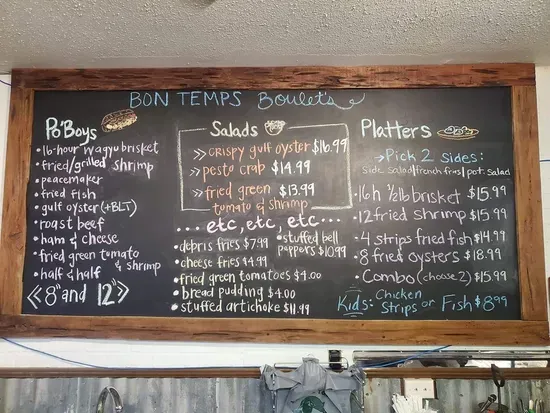 BON TEMPS Boulet's
Po'Boys
• 16-hour wagyu brisket
• fried/grilled shrimp
• peacemaker
• fried fish
• gulf oyster (+BLT)
• roast beef
• ham & cheese
• fried green tomato & shrimp
• half & half
<< 8" and 12" >>
Salads
>> crispy gulf oyster $16.99
>> pesto crab $14.99
>> fried green $13.99
tomato & shrimp
... etc, etc, etc...
• debris fries $7.99
• cheese fries $4.99
• stuffed bell
peppers $10.99
• fried green tomatoes $4.00
• bread pudding $4.00
• stuffed artichoke $11.99
Platters
→ Pick 2 sides:
side salad/french fries/pot. salad
• 16h 1/2lb brisket $15.99
• 12 fried shrimp $15.99
• 4 strips fried fish $14.99
• 8 fried oysters $18.99
• Combo (choose 2) $15.99
Kids: Chicken
Strips or Fish $8.99